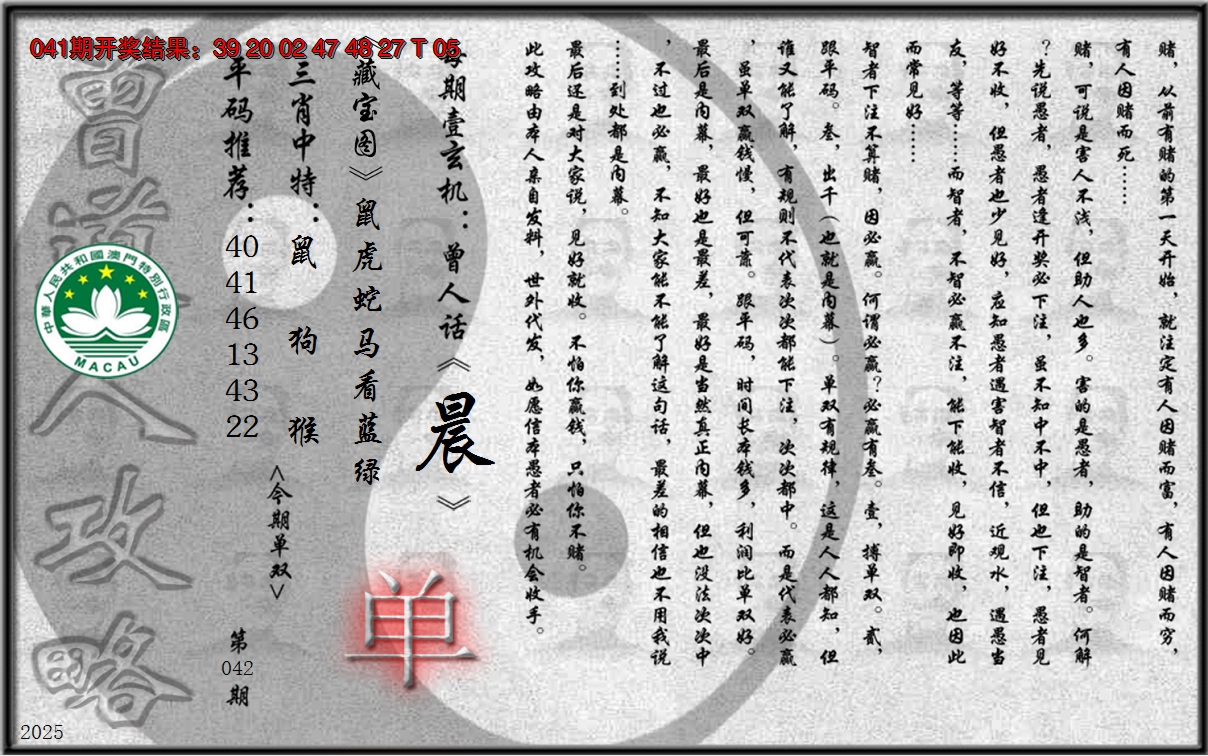 041期开奖结果：39 20 02 47 48 27 T 05
赌，从前有赌的第一天开始，就注定有人因赌而富，有人因赌而穷，
有人因赌而死……
赌，可说是害人不浅，但助人也多。害的是愚者，助的是智者。何解
？先说愚者，愚者逢开奖必下注，虽不知中不中，但也下注，愚者见
好不收，但愚者也少见好，应知愚者遇害智者不信，近观水，遇愚当
友，等等……而智者，不智必赢不注，能下能收，见好即收，也因此
而常见好……
智者下注不算赌，因必赢。何谓必赢？必赢有叁。壹，搏单双。贰，
跟平码。叁，出千（也就是内幕）。单双有规律，这是人人都知，但
谁又能了解，有规则不代表次次都能下注，次次都中。而是代表必赢
，虽单双赢钱慢，但可靠。跟平码，时间长本钱多，利润比单双好。
最后是内幕，最好也是最差，最好是当然真正内幕，但也没法次次中
，不过也必赢，不知大家能不能了解这句话，最差的相信也不用我说
……到处都是内幕。
最后还是对大家说，见好就收。不怕你赢钱，只怕你不赌。
此攻略由本人亲自发料，世外代发，如愿信本愚者必有机会收手。
每期壹玄机：曾人话《晨》
《藏宝图》鼠虎蛇马看蓝绿
三肖中特：鼠 狗 猴
平码推荐：40 41 46 13 43 22
<今期单双>
单
第042期
曾道人攻略
中華人民共和國澳門特別行政區
MACAU
2025